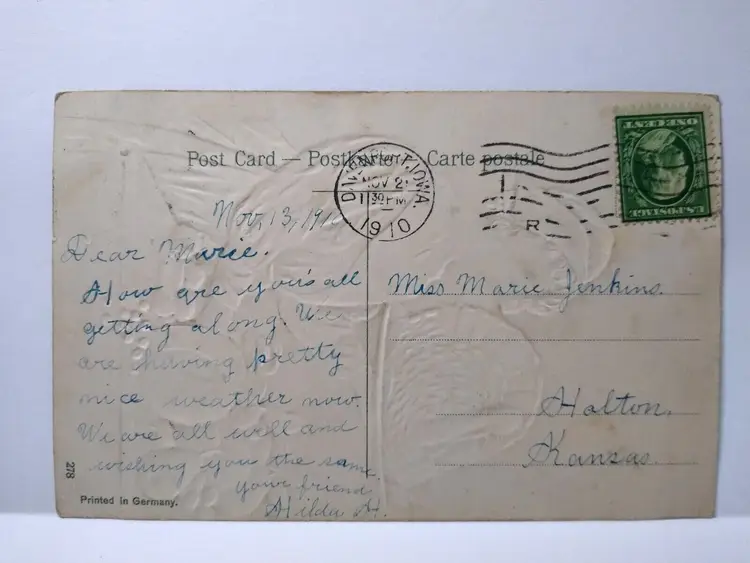 Post Card — Postkarte — Carte postale
DAVENPORT, IOWA.
NOV 2
11 30 PM
1910
R
U.S. POSTAGE
ONE CENT
Nov, 13, 191
Dear Marie.
How are you's all
getting along. We
are having pretty
nice weather now.
We are all well and
wishing you the same.
your friend
Hilda H.
Miss Marie Jenkins.
Holton,
Kansas.
278
Printed in Germany.